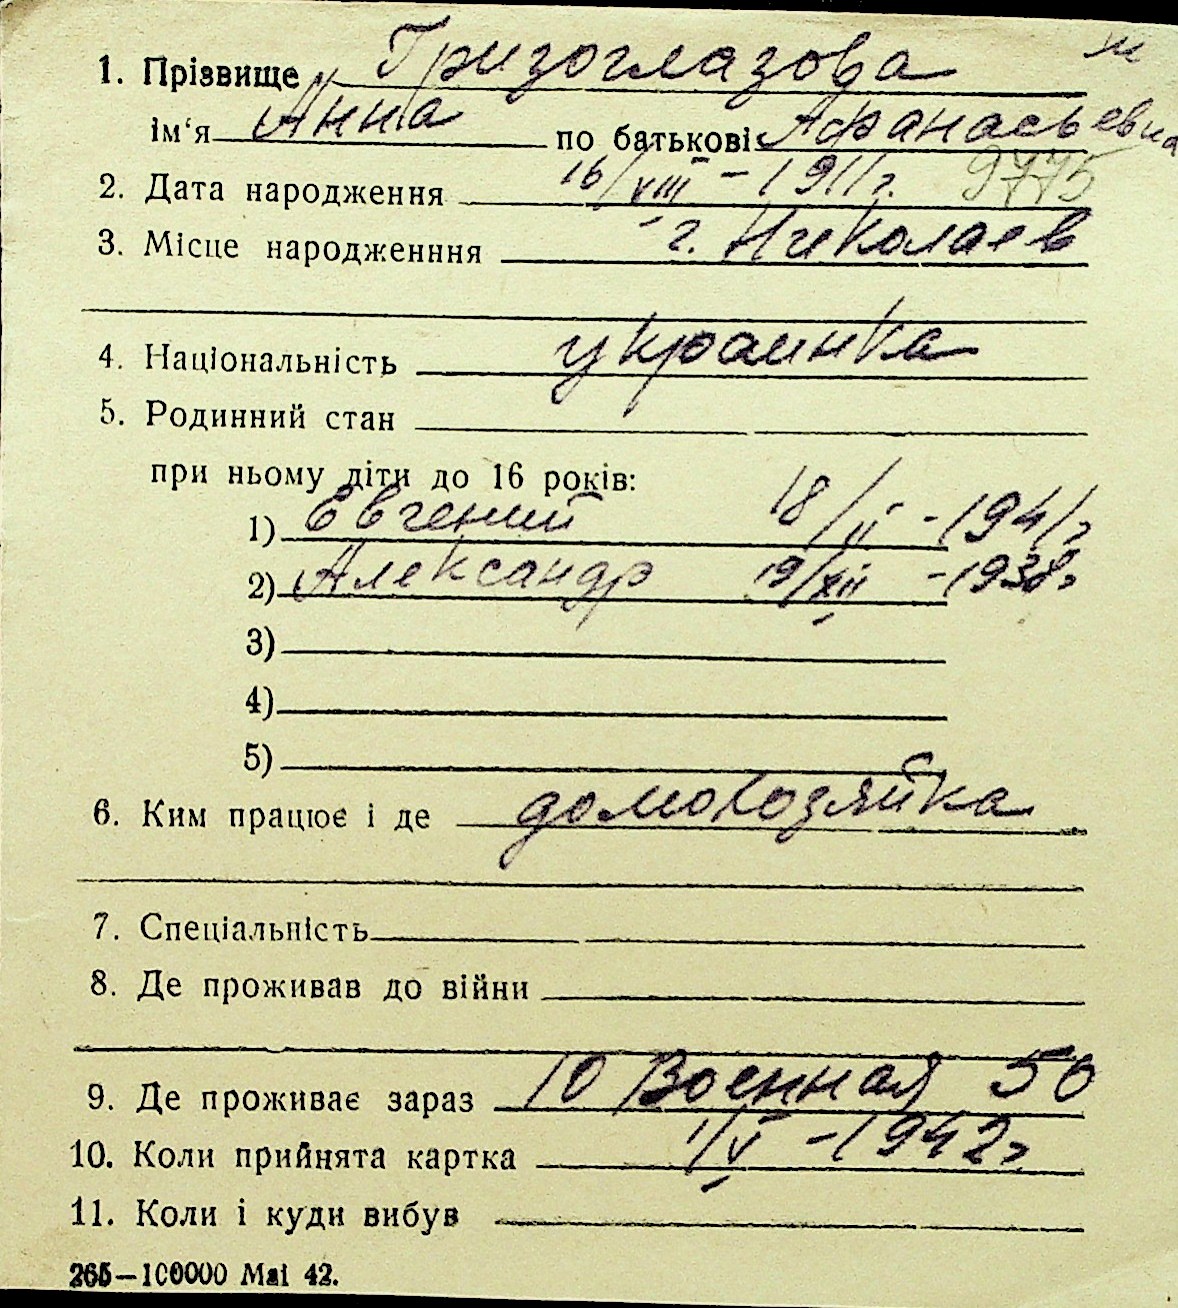 ж
1. Прізвище Гризоглазова
ім‘я Анна по батькові Афанасьевна
2. Дата народження 16/VIII – 1911 г. 9775
3. Місце народженння г. Николаев
4. Національність украинка
5. Родинний стан
при ньому діти до 16 років:
1) Евгений 18/II - 1941 г
2) Александр 19/XII - 1938 г
3)
4)
5)
6. Ким працює і де домохозяйка
7. Спеціальність
8. Де проживав до війни
9. Де проживає зараз 10 Военная 50
10. Коли прийнята картка 1/V – 1942 г
11. Коли і куди вибув
265–100000 Mai 42.